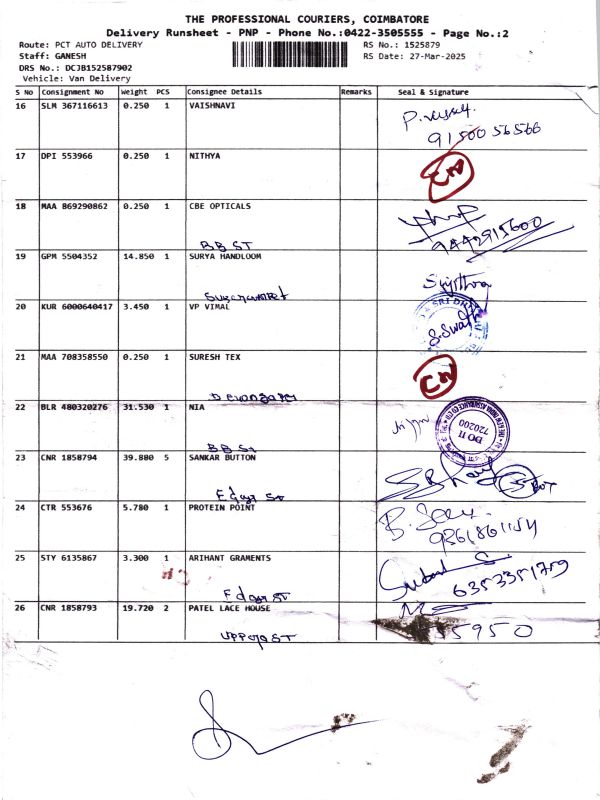 THE PROFESSIONAL COURIERS, COIMBATORE
Delivery Runsheet - PNP - Phone No.:0422-3505555 - Page No.:2
Route: PCT AUTO DELIVERY RS No.: 1525879
Staff: GANESH RS Date: 27-Mar-2025
DRS No.: DCJB152587902
Vehicle: Van Delivery
S No Consignment No Weight PCS Consignee Details Remarks Seal & Signature
16 SLM 367116613 0.250 1 VAISHNAVI
9150056566
17 DPI 553966 0.250 1 NITHYA
18 MAA 869290862 0.250 1 CBE OPTICALS
BB ST 9442915600
19 GPM 5504352 14.850 1 SURYA HANDLOOM
20 KUR 6000640417 3.450 1 VP VIMAL
21 MAA 708358550 0.250 1 SURESH TEX
22 BLR 480320276 31.530 1 NIA
DO II
720200
BB St
23 CNR 1858794 39.880 5 SANKAR BUTTON
24 CTR 553676 5.780 1 PROTEIN POINT
9361861154
25 STY 6135867 3.300 1 ARIHANT GRAMENTS
6353351759
26 CNR 1858793 19.720 2 PATEL LACE HOUSE